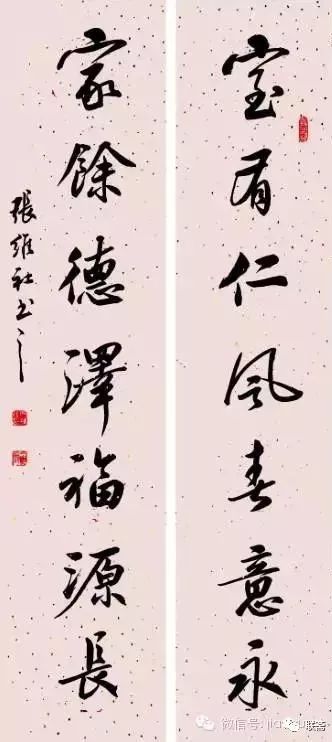 室有仁风春意永
家餘德澤福源長
張維社书之
微信号:jia
联荟